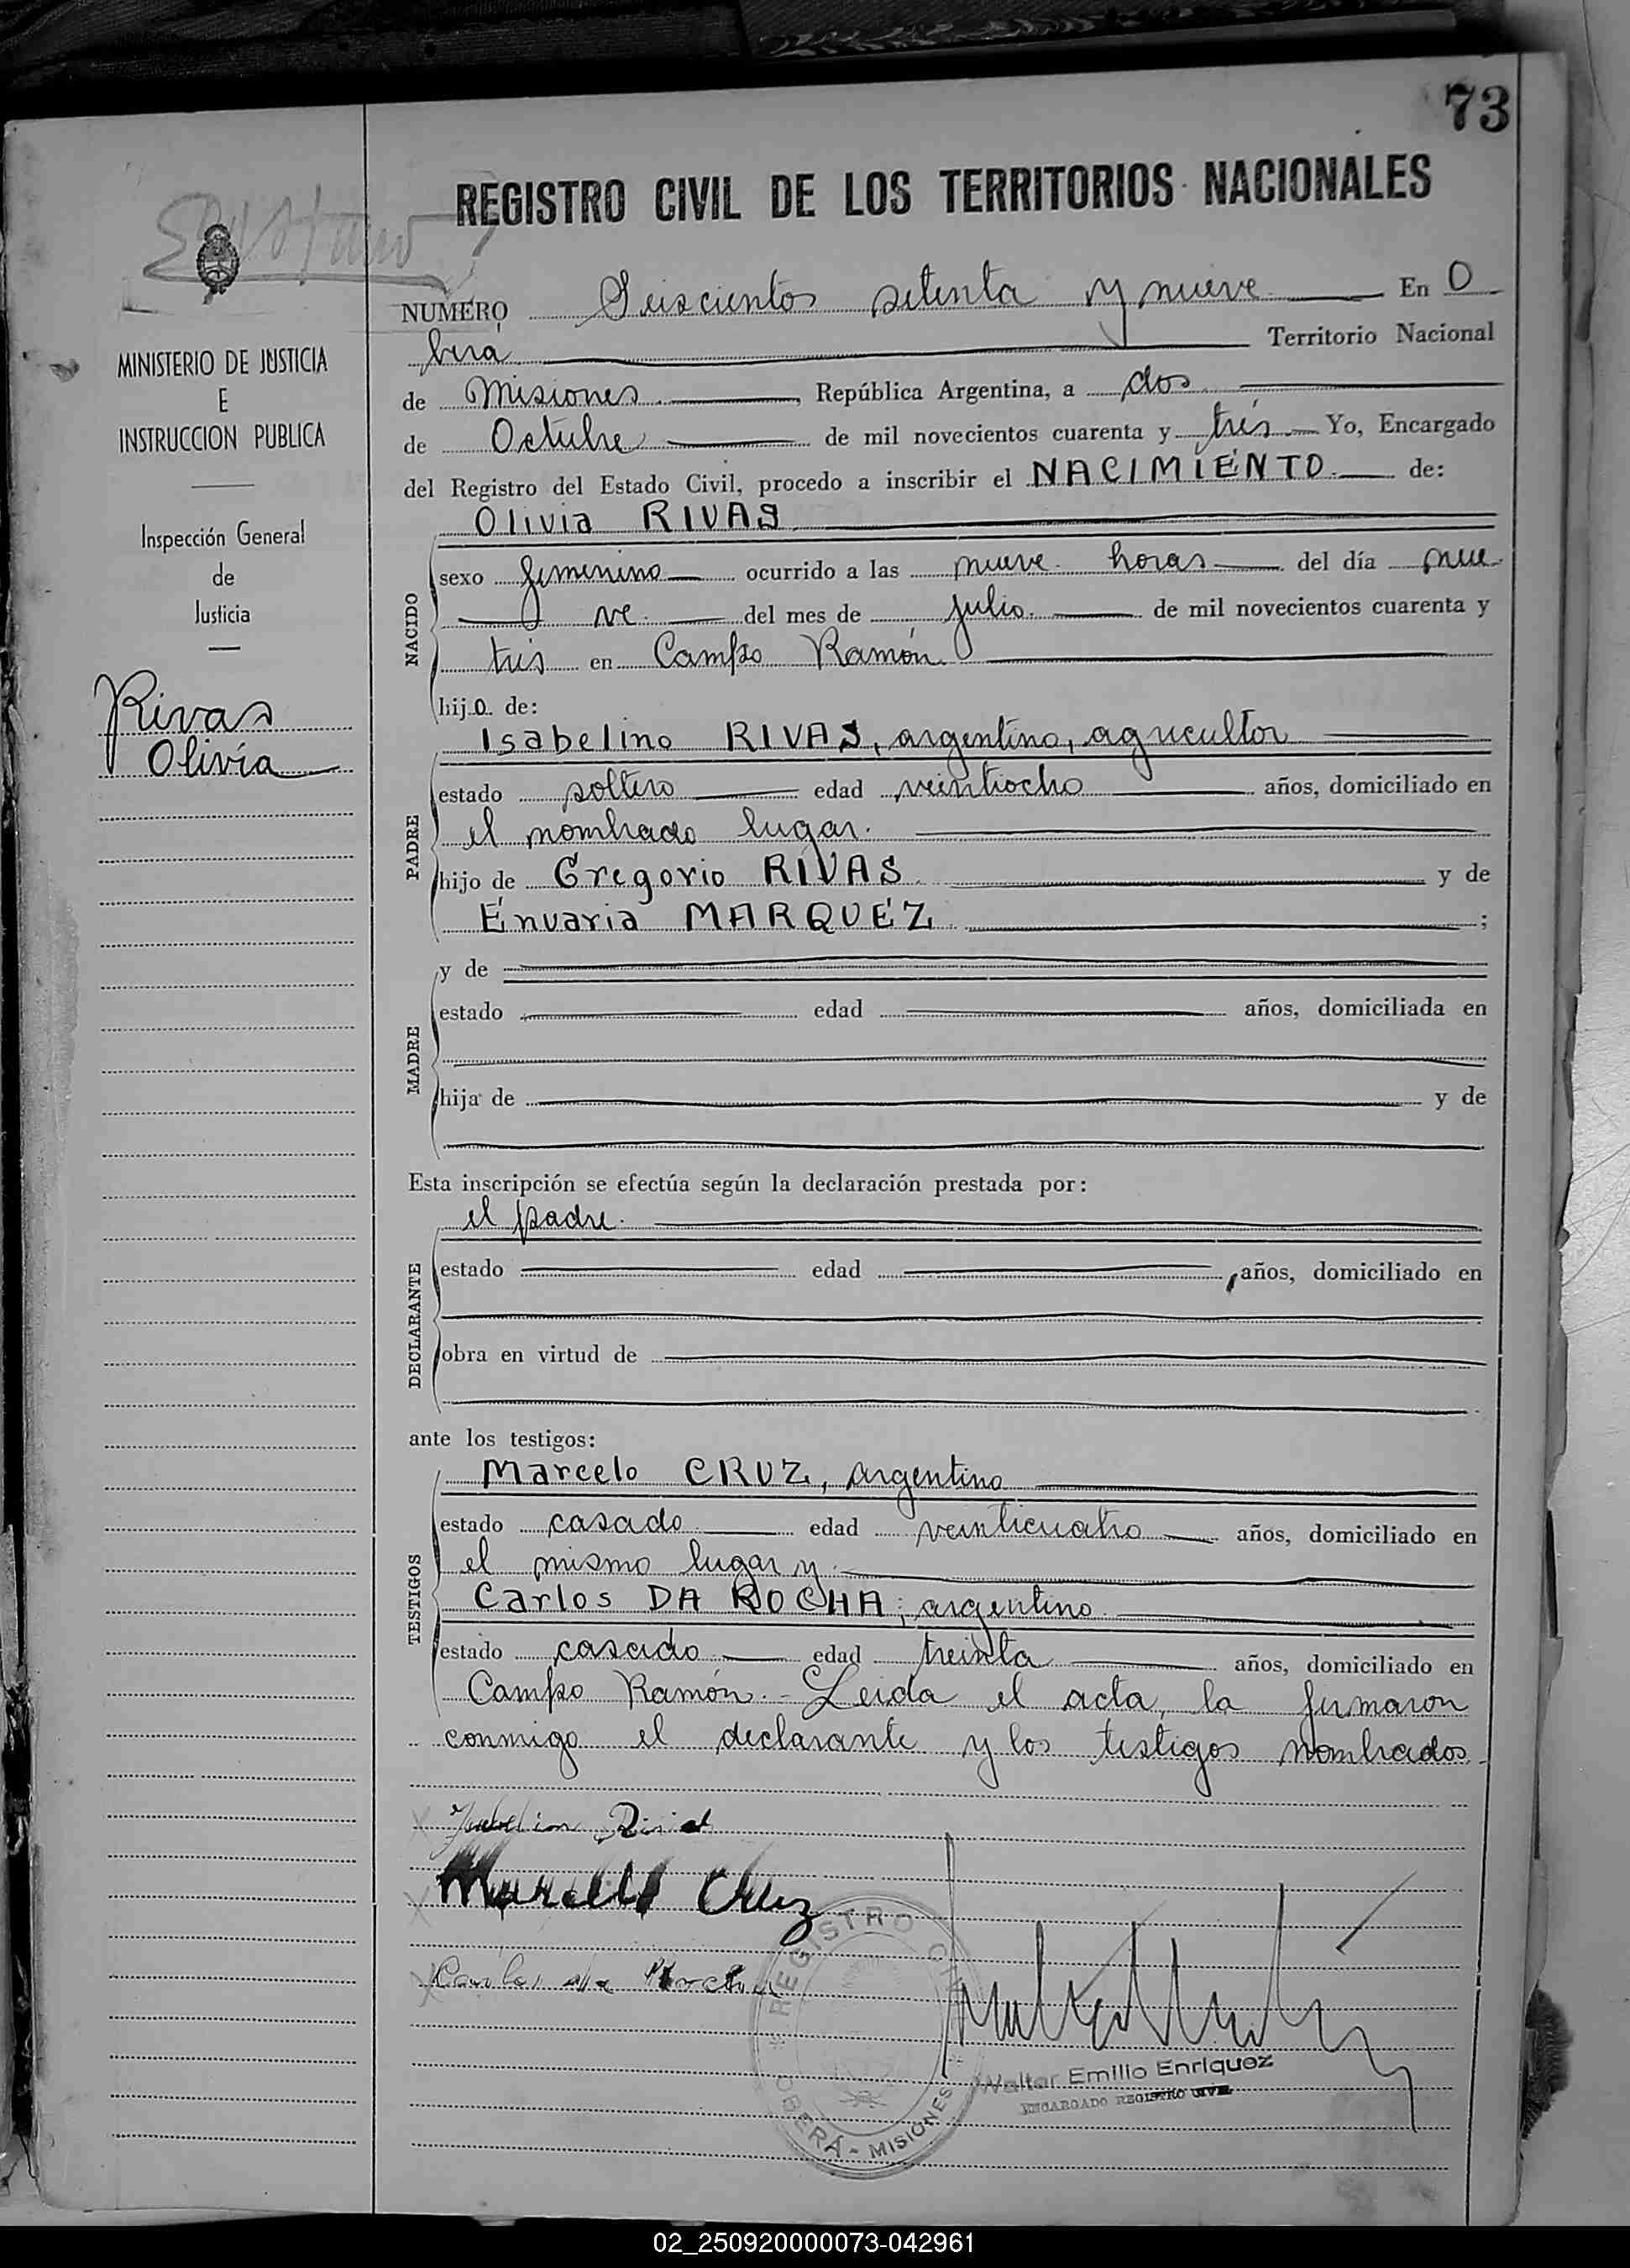 73
REGISTRO CIVIL DE LOS TERRITORIOS NACIONALES
MINISTERIO DE JUSTICIA
E
INSTRUCCION PUBLICA
Inspección General
de
Justicia
Rivas
Olivia
NUMERO Seiscientos setenta y nueve En O
berá Territorio Nacional
de Misiones República Argentina, a dos
de Octubre de mil novecientos cuarenta y trés Yo, Encargado
del Registro del Estado Civil, procedo a inscribir el NACIMIENTO de:
Olivia RIVAS
NACIDO
sexo femenino ocurrido a las nueve horas del día nue
ve del mes de julio de mil novecientos cuarenta y
tres en Campo Ramón
hijo de:
Isabelino RIVAS, argentino, agricultor
PADRE
estado soltero edad veintiocho años, domiciliado en
el nombrado lugar.
hijo de Gregorio RIVAS y de
Enuaria MARQUEZ ;
MADRE
y de
estado edad años, domiciliada en
hija de y de
Esta inscripción se efectúa según la declaración prestada por:
el padre.
DECLARANTE
estado edad años, domiciliado en
obra en virtud de
ante los testigos:
Marcelo CRUZ, argentino
TESTIGOS
estado casado edad veinticuatro años, domiciliado en
el mismo lugar y
Carlos DA ROCHA; argentino
estado casado edad treinta años, domiciliado en
Campo Ramón.- Leida el acta, la firmaron
conmigo el declarante y los testigos nombrados
Marcelo Cruz
Carlos da Rocha
REGISTRO CIVIL
OBERÁ - MISIONES
Walter Emilio Enriquez
ENCARGADO REGISTRO CIVIL
02_250920000073-042961